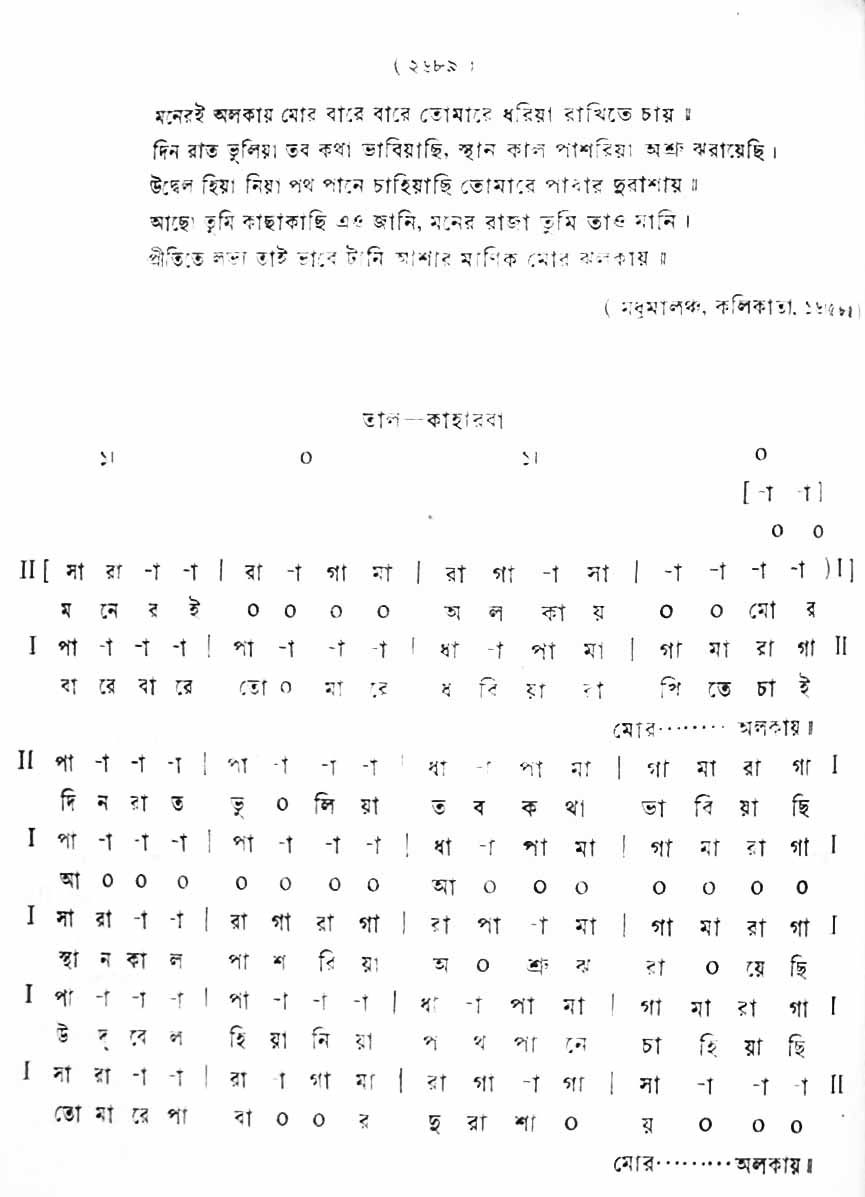 ( ২৬৮৯ )
মনেরই অলকায় মোর বারে বারে তোমারে ধরিয়া রাখিতে চায় ॥
দিন রাত ভুলিয়া তব কথা ভাবিয়াছি, স্থান কাল পাশরিয়া অশ্রু ঝরায়েছি ।
উদ্বেল হিয়া নিয়া পথ পানে চাহিয়াছি তোমারে পাবার দুরাশায় ॥
আছো তুমি কাছাকাছি এও জানি, মনের রাজা তুমি তাও মানি ।
প্রীতিতে লভ্য তাই ভাবে টানি আশার মাণিক মোর ঝলকায় ॥
( মধুমালঞ্চ, কলিকাতা,
তাল—কাহারবা
১। ০ ১। ০
[ -া -া ]
০ ০
II [ সা রা -া -া | রা -া গা মা | রা গা -া সা | -া -া -া -া ) I ]
ম নে র ই ০ ০ ০ ০ অ ল কা য় ০ ০ মো র
I পা -া -া -া | পা -া -া -া | ধা -া পা মা | গা মা রা গা II
বা রে বা রে তো ০ মা রে ধ রি য়া রা খি তে চা ই
মোর········ অলকায় ॥
II পা -া -া -া | পা -া -া -া | ধা -া পা মা | গা মা রা গা I
দি ন রা ত ভু ০ লি য়া ত ব ক থা ভা বি য়া ছি
I পা -া -া -া | পা -া -া -া | ধা -া পা মা | গা মা রা গা I
আ ০ ০ ০ ০ ০ ০ ০ আ ০ ০ ০ ০ ০ ০ ০
I সা রা -া -া | রা গা রা গা | রা পা -া মা | গা মা রা গা I
স্থা ন কা ল পা শ রি য়া অ ০ শ্রু ঝ রা ০ য়ে ছি
I পা -া -া -া | পা -া -া -া | ধা -া পা মা | গা মা রা গা I
উ দ্ বে ল হি য়া নি য়া প থ পা নে চা হি য়া ছি
I সা রা -া -া | রা -া গা মা | রা গা -া গা | সা -া -া -া II
তো মা রে পা বা ০ ০ র দু রা শা ০ য় ০ ০ ০
মোর·········অলকায় ॥